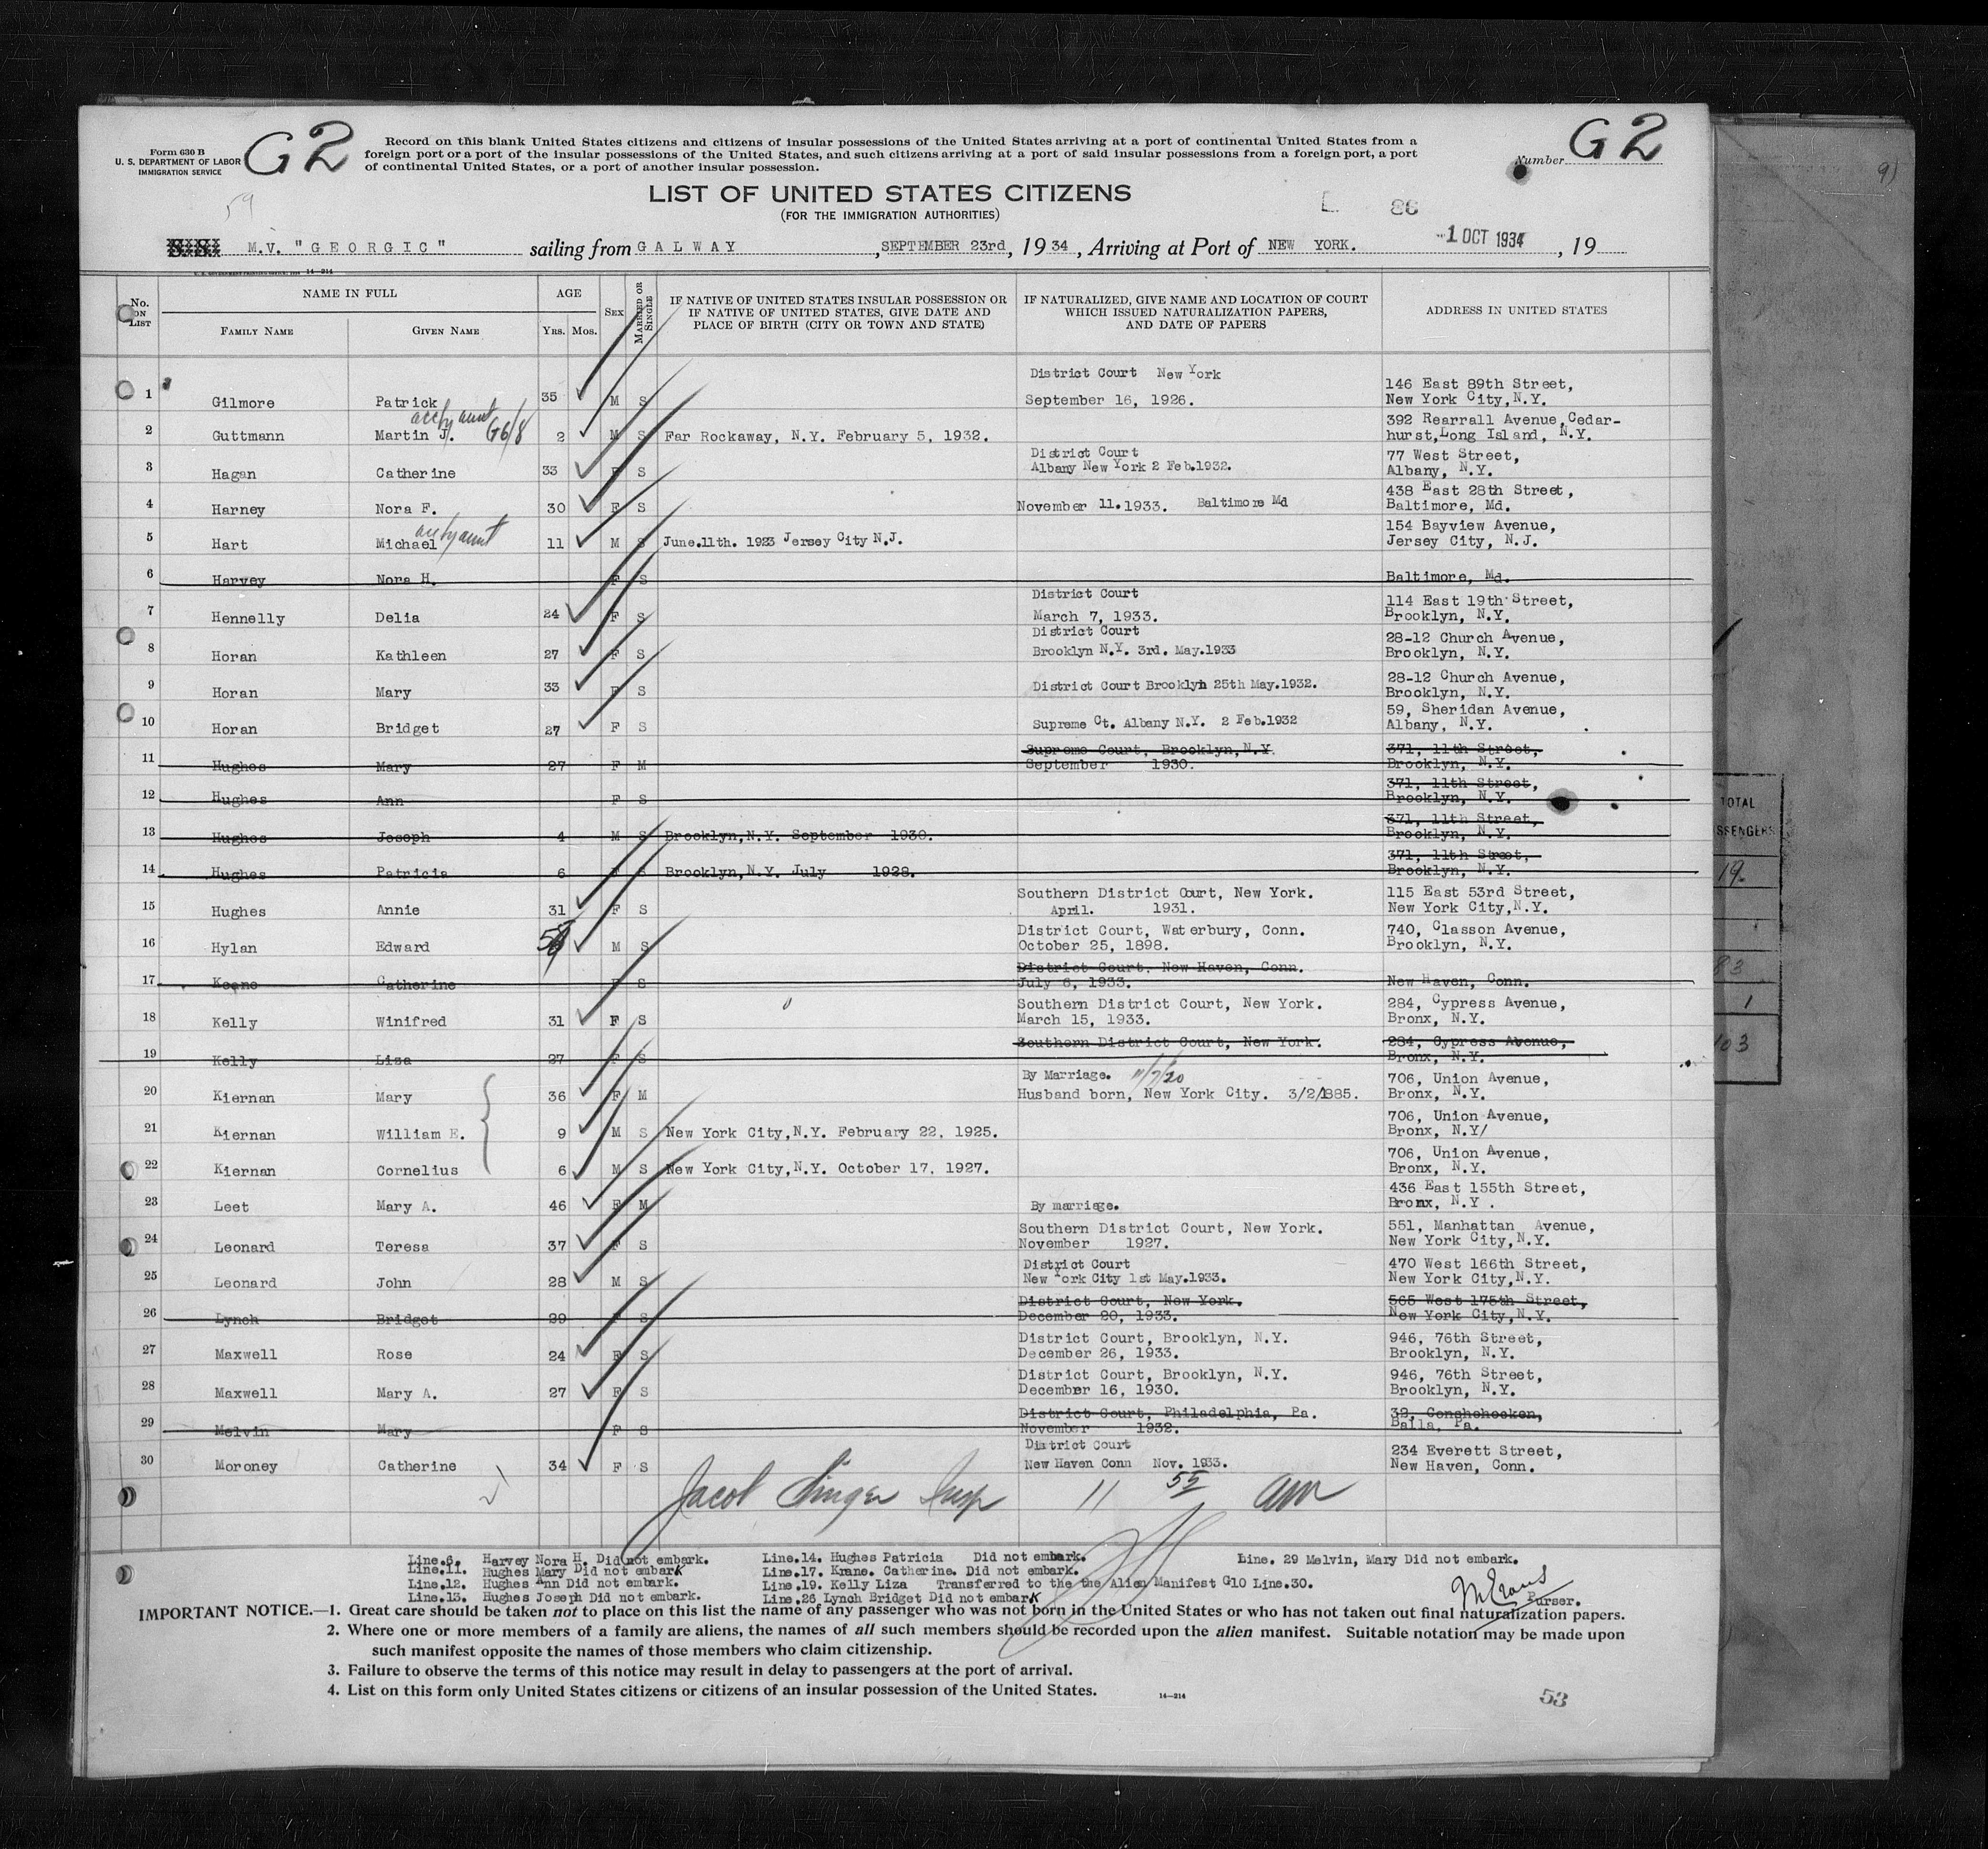 Form 630 B
U. S. DEPARTMENT OF LABOR
IMMIGRATION SERVICE
G2
Record on this blank United States citizens and citizens of insular possessions of the United States arriving at a port of continental United States from a
foreign port or a port of the insular possessions of the United States, and such citizens arriving at a port of said insular possessions from a foreign port, a port
of continental United States, or a port of another insular possession.
Number G2
LIST OF UNITED STATES CITIZENS
(FOR THE IMMIGRATION AUTHORITIES)
59
86
M.V. "GEORGIC" sailing from GALWAY, SEPTEMBER 23rd, 1934, Arriving at Port of NEW YORK. 1 OCT 1934, 19
14-214
No. ON LIST
NAME IN FULL
FAMILY NAME GIVEN NAME
AGE
Yrs. Mos.
SEX
MARRIED OR SINGLE
IF NATIVE OF UNITED STATES INSULAR POSSESSION OR
IF NATIVE OF UNITED STATES, GIVE DATE AND
PLACE OF BIRTH (CITY OR TOWN AND STATE)
IF NATURALIZED, GIVE NAME AND LOCATION OF COURT
WHICH ISSUED NATURALIZATION PAPERS,
AND DATE OF PAPERS
ADDRESS IN UNITED STATES
District Court New York 146 East 89th Street,
1 Gilmore Patrick 35 M S September 16, 1926. New York City, N.Y.
acc by aunt G6/8 392 Rearrall Avenue, Cedar-
2 Guttmann Martin J. 2 M S Far Rockaway, N.Y. February 5, 1932. hurst, Long Island, N.Y.
District Court 77 West Street,
3 Hagan Catherine 33 F S Albany New York 2 Feb.1932. Albany, N.Y.
438 East 28th Street,
4 Harney Nora F. 30 F S November 11.1933. Baltimore Md Baltimore, Md.
acc by aunt 154 Bayview Avenue,
5 Hart Michael 11 M S June.11th. 1923 Jersey City N.J. Jersey City, N.J.
6 Harvey Nora H. F S Baltimore, Md.
District Court 114 East 19th Street,
7 Hennelly Delia 24 F S March 7, 1933. Brooklyn, N.Y.
District Court 28-12 Church Avenue,
8 Horan Kathleen 27 F S Brooklyn N.Y. 3rd. May.1933 Brooklyn, N.Y.
28-12 Church Avenue,
9 Horan Mary 33 F S District Court Brooklyn 25th May.1932. Brooklyn, N.Y.
59, Sheridan Avenue,
10 Horan Bridget 27 F S Supreme Ct. Albany N.Y. 2 Feb.1932 Albany, N.Y.
Supreme Court, Brooklyn, N.Y. 371, 11th Street,
11 Hughes Mary 27 F M September 1930. Brooklyn, N.Y.
371, 11th Street,
12 Hughes Ann F S Brooklyn, N.Y.
371, 11th Street,
13 Hughes Joseph 4 M S Brooklyn, N.Y. September 1930. Brooklyn, N.Y.
371, 11th Street,
14 Hughes Patricia 6 F S Brooklyn, N.Y. July 1928. Brooklyn, N.Y.
Southern District Court, New York. 115 East 53rd Street,
15 Hughes Annie 31 F S April. 1931. New York City, N.Y.
District Court, Waterbury, Conn. 740, Classon Avenue,
16 Hylan Edward M S October 25, 1898. Brooklyn, N.Y.
District Court, New Haven, Conn.
17 Keane Catherine F S July 6, 1933. New Haven, Conn.
Southern District Court, New York. 284, Cypress Avenue,
18 Kelly Winifred 31 F S March 15, 1933. Bronx, N.Y.
Southern District Court, New York. 284, Cypress Avenue,
19 Kelly Liza 27 F S Bronx, N.Y.
By Marriage. 11/7/20 706, Union Avenue,
20 Kiernan Mary 36 F M Husband born, New York City. 3/2/1885. Bronx, N.Y.
706, Union Avenue,
21 Kiernan William E. 9 M S New York City, N.Y. February 22, 1925. Bronx, N.Y/
706, Union Avenue,
22 Kiernan Cornelius 6 M S New York City, N.Y. October 17, 1927. Bronx, N.Y.
436 East 155th Street,
23 Leet Mary A. 46 F M By marriage. Bronx, N.Y.
Southern District Court, New York. 551, Manhattan Avenue,
24 Leonard Teresa 37 F S November 1927. New York City, N.Y.
District Court 470 West 166th Street,
25 Leonard John 28 M S New York City 1st May.1933. New York City, N.Y.
District Court, New York. 565 West 175th Street,
26 Lynch Bridget 29 F S December 20, 1933. New York City, N.Y.
District Court, Brooklyn, N.Y. 946, 76th Street,
27 Maxwell Rose 24 F S December 26, 1933. Brooklyn, N.Y.
District Court, Brooklyn, N.Y. 946, 76th Street,
28 Maxwell Mary A. 27 F S December 16, 1930. Brooklyn, N.Y.
District Court, Philadelphia, Pa. 32, Conshohocken,
29 Melvin Mary F S November 1932. Balla, Pa.
District Court 234 Everett Street,
30 Moroney Catherine 34 F S New Haven Conn Nov. 1933. New Haven, Conn.
Jacob Singer Insp 11 55 am
Line.6. Harvey Nora H. Did not embark. Line.14. Hughes Patricia Did not embark. Line. 29 Melvin, Mary Did not embark.
Line.11. Hughes Mary Did not embark Line.17. Krane. Catherine. Did not embark.
Line.12. Hughes Ann Did not embark. Line.19. Kelly Liza Transferred to the the Alien Manifest G10 Line.30.
Line.13. Hughes Joseph Did not embark. Line.26 Lynch Bridget Did not embark
Purser.
IMPORTANT NOTICE.—1. Great care should be taken not to place on this list the name of any passenger who was not born in the United States or who has not taken out final naturalization papers.
2. Where one or more members of a family are aliens, the names of all such members should be recorded upon the alien manifest. Suitable notation may be made upon
such manifest opposite the names of those members who claim citizenship.
3. Failure to observe the terms of this notice may result in delay to passengers at the port of arrival.
4. List on this form only United States citizens or citizens of an insular possession of the United States.
14-214
53
TOTAL
19.
83
1
103